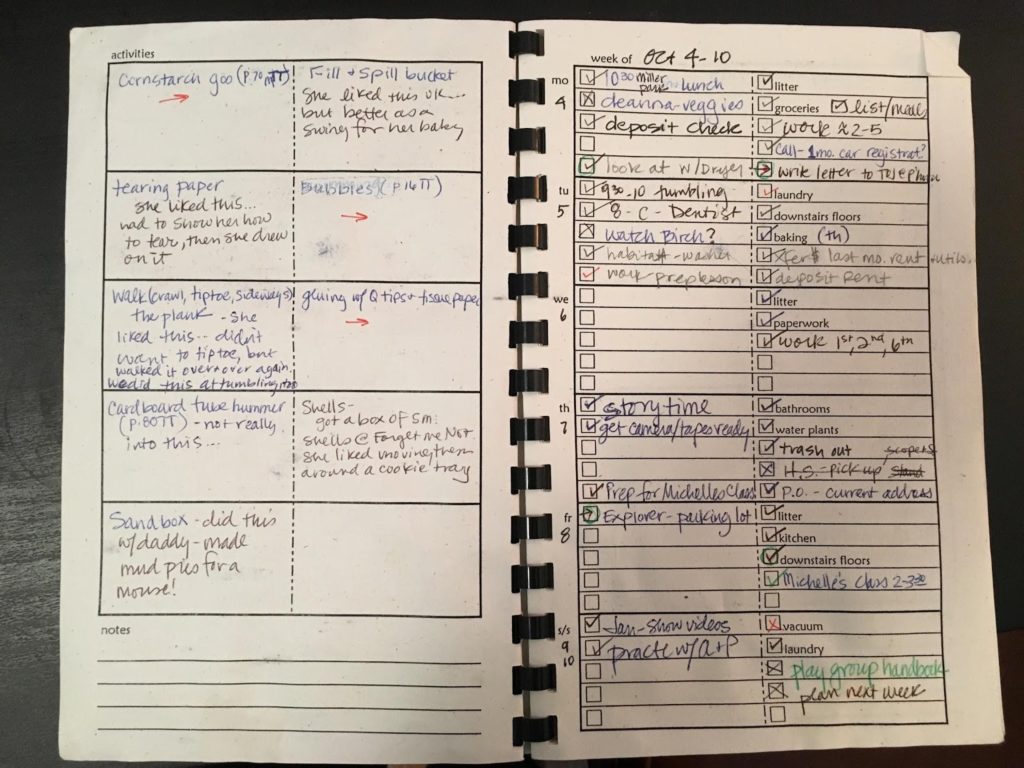 activities
Cornstarch goo (p.70 TT)
Fill + Spill bucket
she liked this ok...
but better as a
swing for her baby
tearing paper
she liked this...
had to show her how
to tear, then she drew
on it
Bubbles (p.16TT)
walk (crawl, tiptoe, sideways)
the plank - she
liked this... didn't
want to tiptoe, but
walked it over + over again.
we did this at tumbling, too
gluing w/ Q tips + tissue paper
Cardboard tube hummer
(p.80TT) - not really
into this...
Shells -
got a box of sm.
shells @ Forget me Not.
she liked moving them
around a cookie tray
Sandbox - did this
w/daddy - made
mud pies for a
mouse!
notes
week of Oct 4-10
mo
4
10:30 miller park lunch
deanna-veggies
deposit check
look at W/Dryer
litter
groceries list/meals
work 2-5
Call - 1mo. car registrat.?
write letter to
tu
5
9:30-10 tumbling
8 - C - Dentist
watch Birch?
habitat - washer
work prep lesson
laundry
downstairs floors
baking (th)
xfer $ last mo. rent + utils
deposit Rent
we
6
litter
paperwork
work 1st, 2nd, 6th
th
7
story time
get camera/tapes ready
Prep for Michelles Class
bathrooms
water plants
trash out
H.S. - pick up
P.O. - current address
fr
8
Explorer - parking lot
litter
kitchen
downstairs floors
Michelle's Class 2-3:30
s/s
9
10
Jan - show videos
practc w/ A+P
vacuum
laundry
play group handbook
plan next week